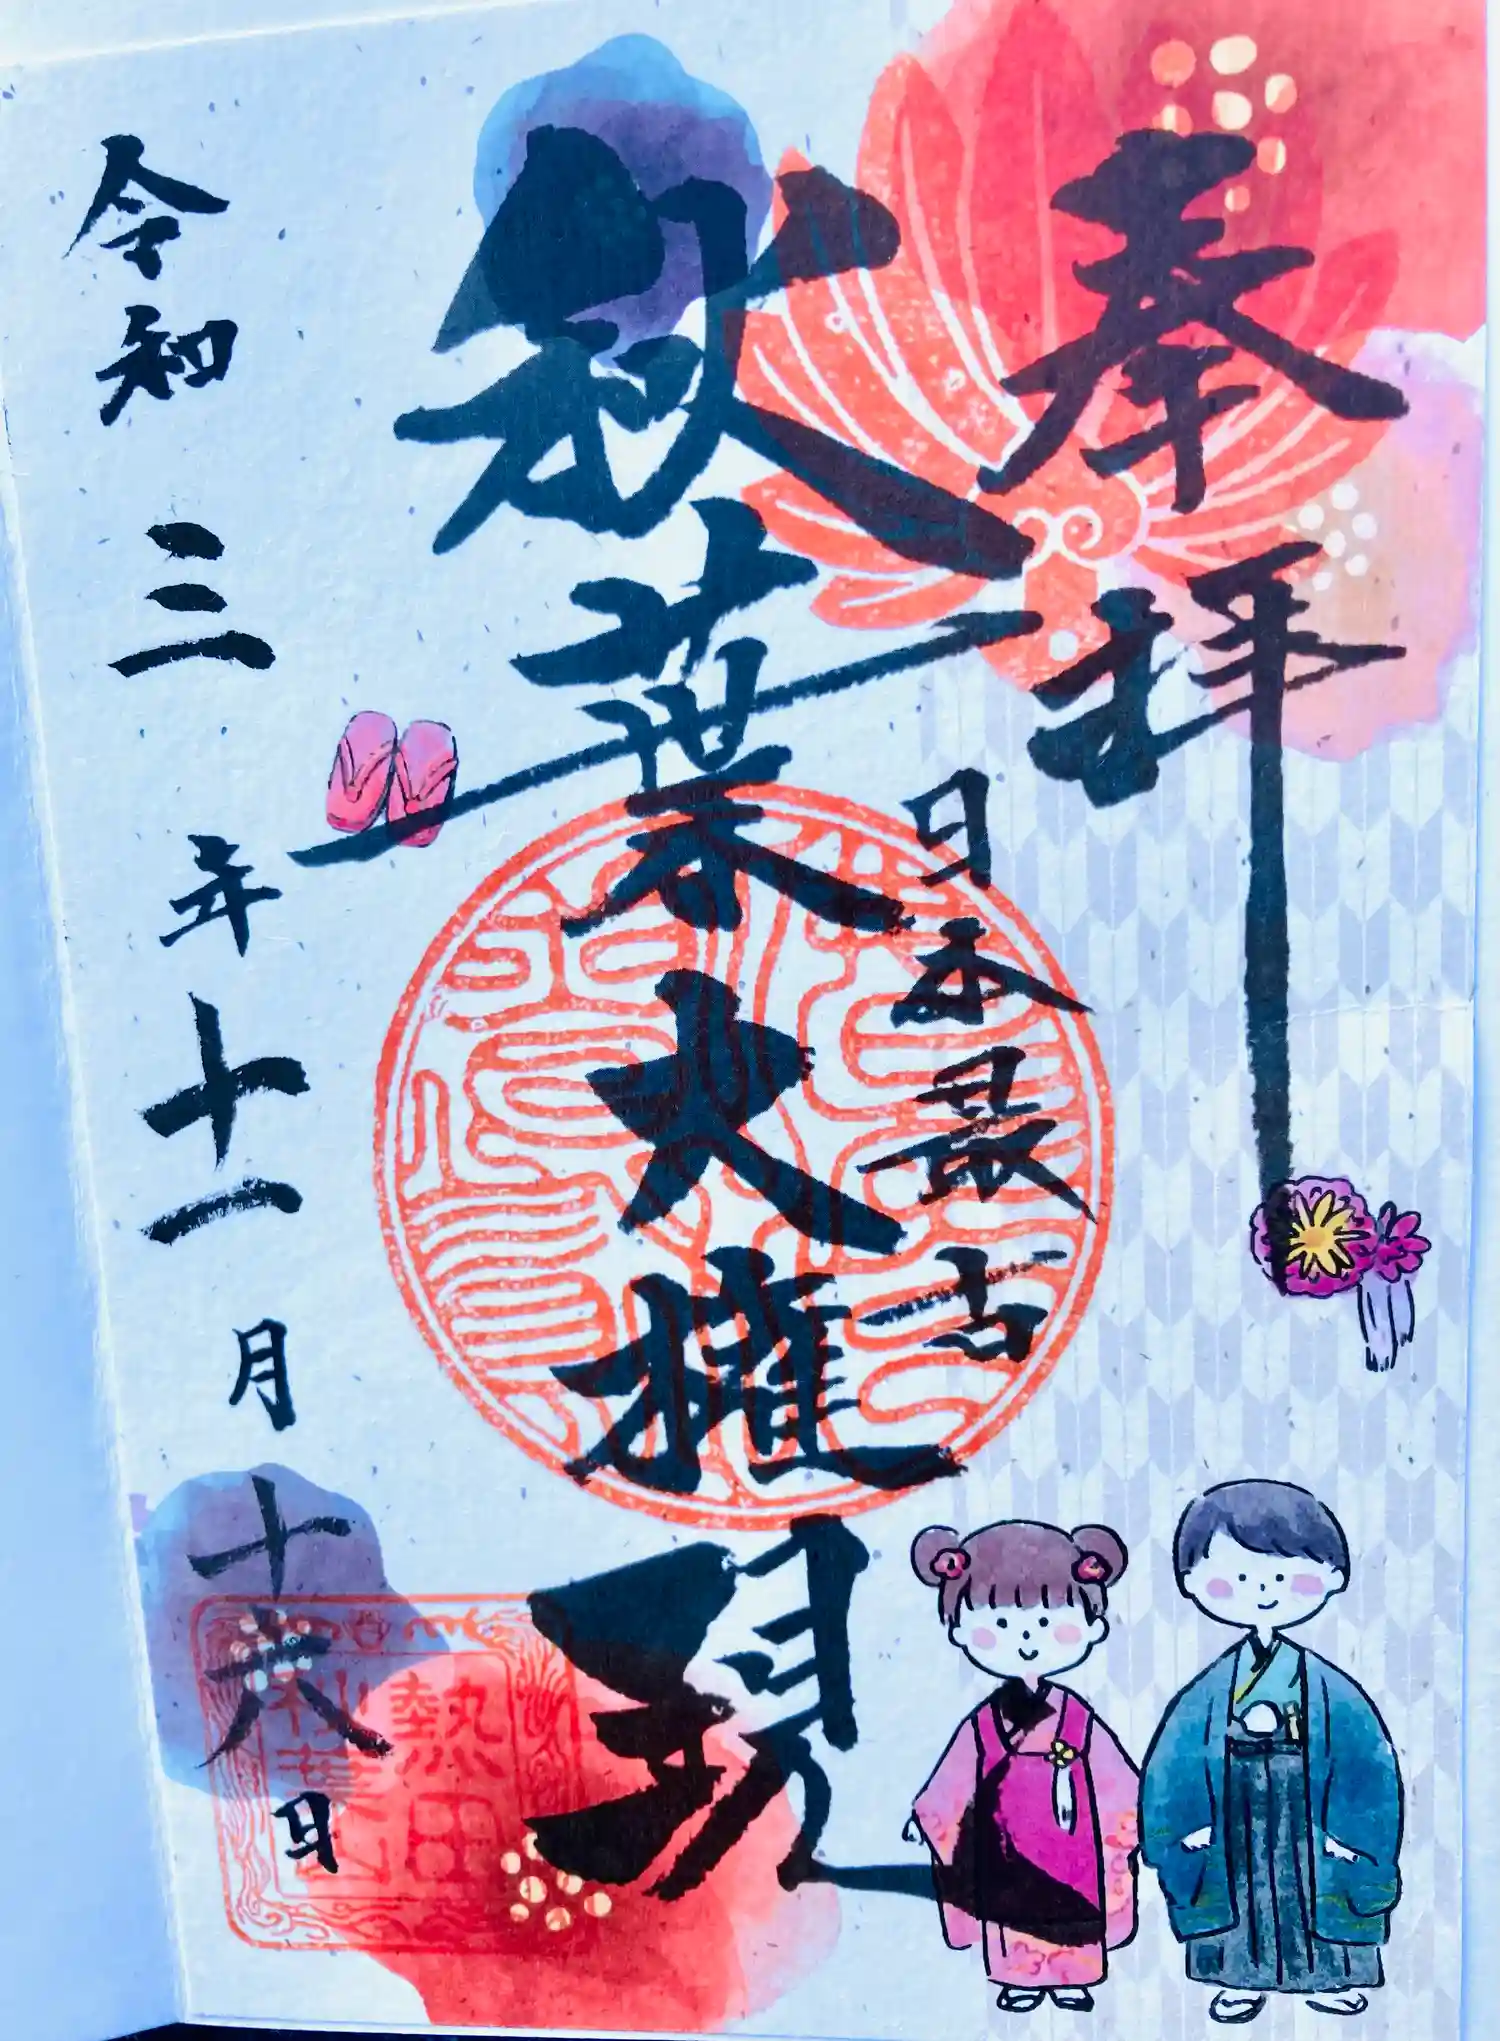 奉拝
日本最古
秋葉大権現
令和三年十一月十六日
熱田
秋葉山